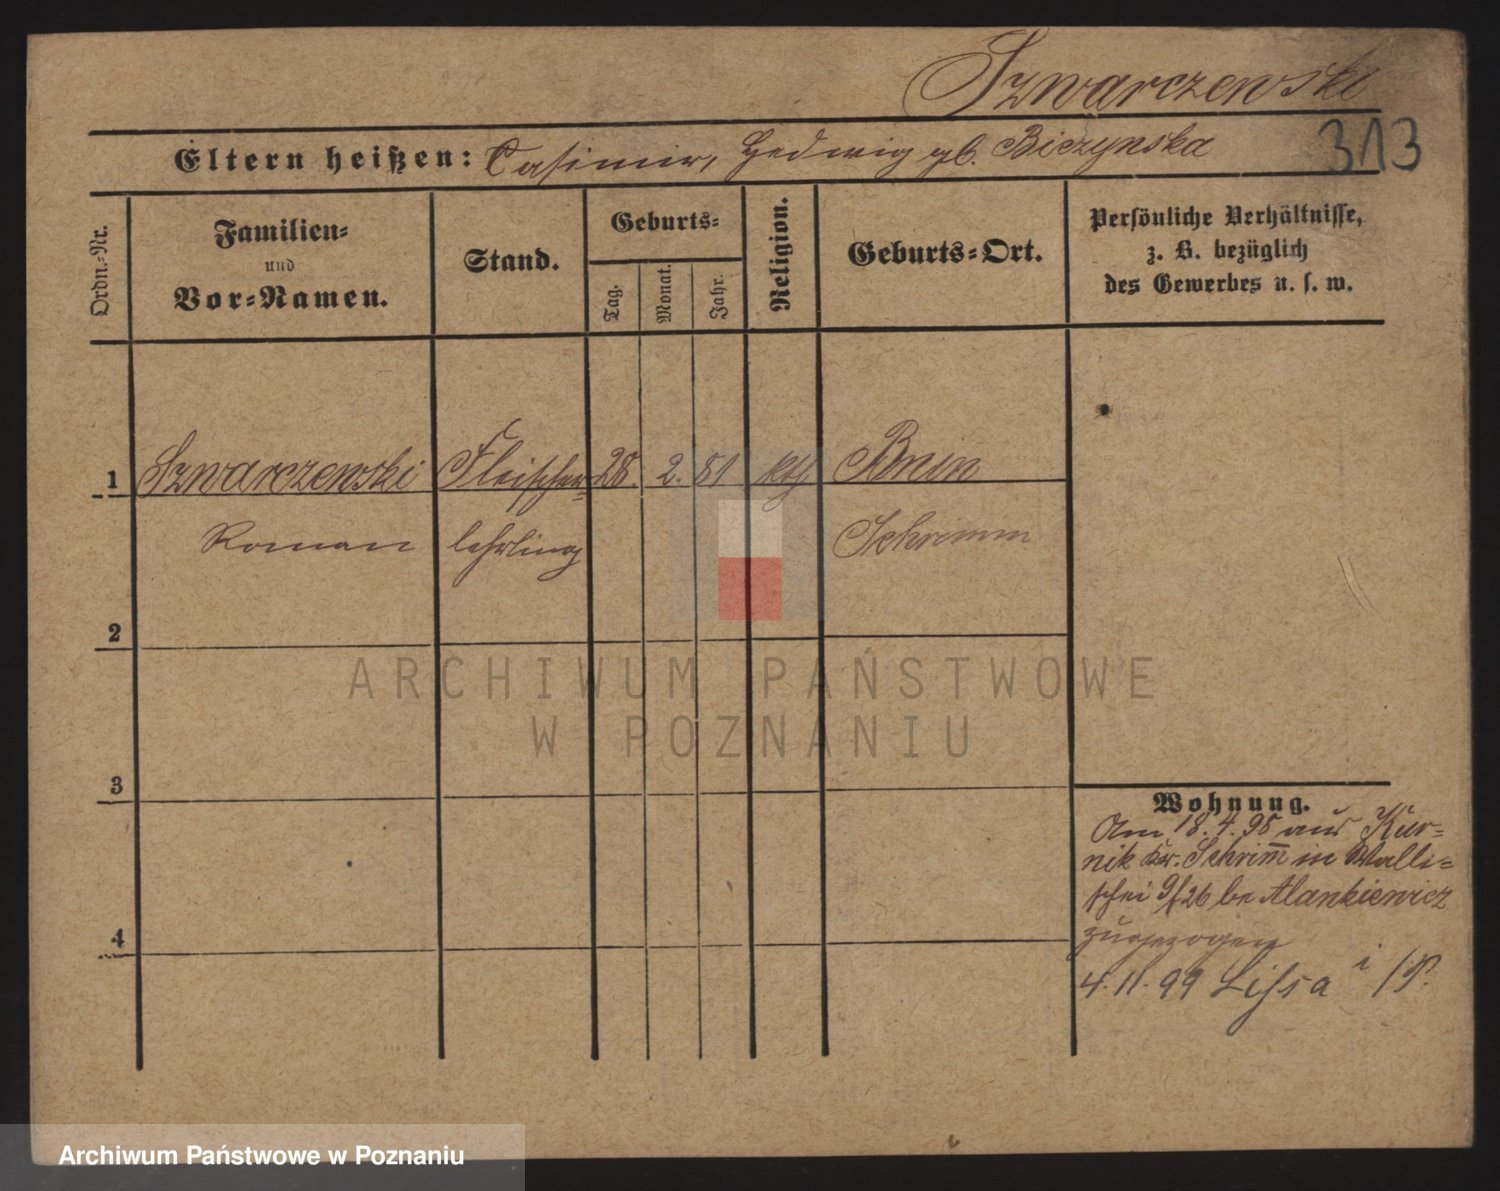 Szwarczewski
Eltern heißen: Casimir, Hedwig gb. Bieczynska 313
Ordn.-Nr.
Familien-
und
Vor-Namen.
Stand.
Geburts-
Tag.
Monat.
Jahr.
Religion.
Geburts-Ort.
Persönliche Verhältnisse,
z. B. bezüglich
des Gewerbes u. s. w.
1 Szwarczewski Fleischer- 28. 2. 81 kth Bnin
Roman lehrling Schrimm
2
3
4
Wohnung.
Am 18. 4. 98 aus Kur-
nik Kr. Schrim̅ in Walli-
schei 9/26 be
zugezogen
4. 11. 99 Lissa i/P.
ARCHIWUM PAŃSTWOWE
W POZNANIU
Archiwum Państwowe w Poznaniu